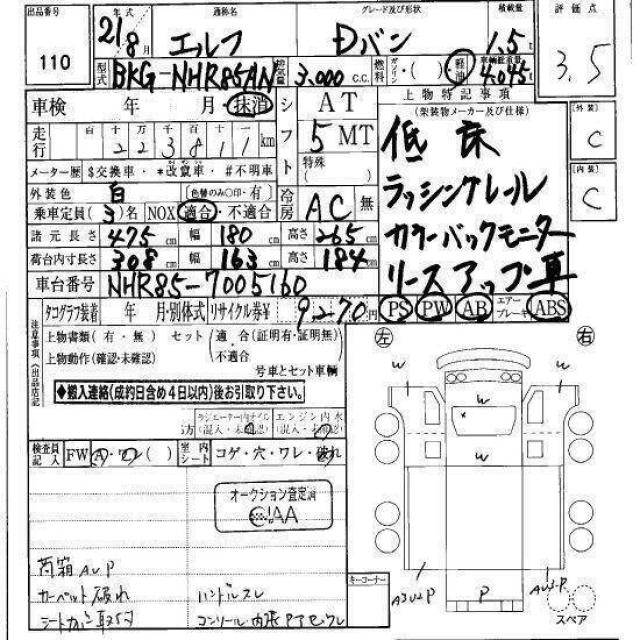 出品番号 年式 通称名 グレード及び形状 積載量 評価点
110 21年8月 エルフ Dバン 1.5t 3.5
型式 BKG-NHR85AN 排気量 3,000 C.C. 燃料 ガソリン・( ) 軽油 車輌総重量 4,045
車検 年 月・抹消 シフト AT 上物特記事項
(架装物メーカー及び仕様) 外装 C
走行 百 十 万 千 百 十 一 5 MT 低床
223811 km 特殊( )
メーター歴 $交換車・*改竄車・#不明車 内装 C
外装色 白 (色替のみ○印・有) 冷房 AC 無 ラッシングレール
乗車定員(3)名 NOX 適合・不適合
諸元長さ 475cm 幅 180cm 高さ 265cm カラーバックモニター
荷台内寸長さ 308cm 幅 163cm 高さ 184cm リースアップ車
車台番号 NHR85-7005160
タコグラフ装着 年 月・別体式 リサイクル券¥ 9270円 PS PW AB エアーブレーキ ABS
注意事項(出品店記
上物書類(有・無) セット 適合(証明有・証明無)
上物動作(確認・未確認) 不適合
号車とセット車輌
左 右
◆搬入連絡(成約日含め4日以内)後お引取り下さい。
ラジエーター内オイル エンジン内水
(混入・未確認) (混入・未確認)
検査員記入 FW A・ワレ( ) 室内シート コゲ・穴・ワレ・破れ
W W W W
オークション査定済
荷箱 AUP
カーペット破れ ハンドルスレ
コーナー
P
スペア